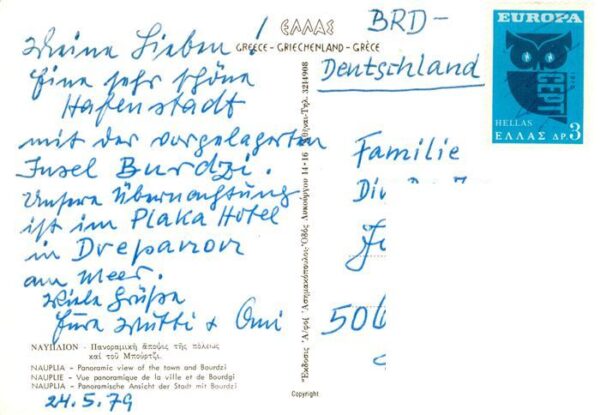 ΕΛΛΑΣ
GREECE - GRIECHENLAND - GRÈCE
Meine Lieben!
Eine sehr schöne
Hafenstadt
mit der vorgelagerten
Insel Burdzi.
Unsere Übernachtung
ist im Plaka Hotel
in Drepanon
am Meer.
Viele Grüße
Eure Mutti + Omi
ΝΑΥΠΛΙΟΝ - Πανοραμικὴ ἄποψις τῆς πόλεως
καὶ τοῦ Μπούρτζι.
NAUPLIA - Panoramic view of the town and Bourdzi
NAUPLIE - Vue panoramique de la ville et de Bourdgi
NAUPLIA - Panoramische Ansicht der Stadt mit Bourdzi
24.5.79
Ἔκδοσις Ἀ/φοὶ Ἀσημακόπουλοι-Ὁδὸς Λυκούργου 14-16 Ἀθῆναι-Τηλ. 3214908
Copyright
BRD-
Deutschland
EUROPA
CEPT
HELLAS
ΕΛΛΑΣ ΔΡ. 3
Familie
506